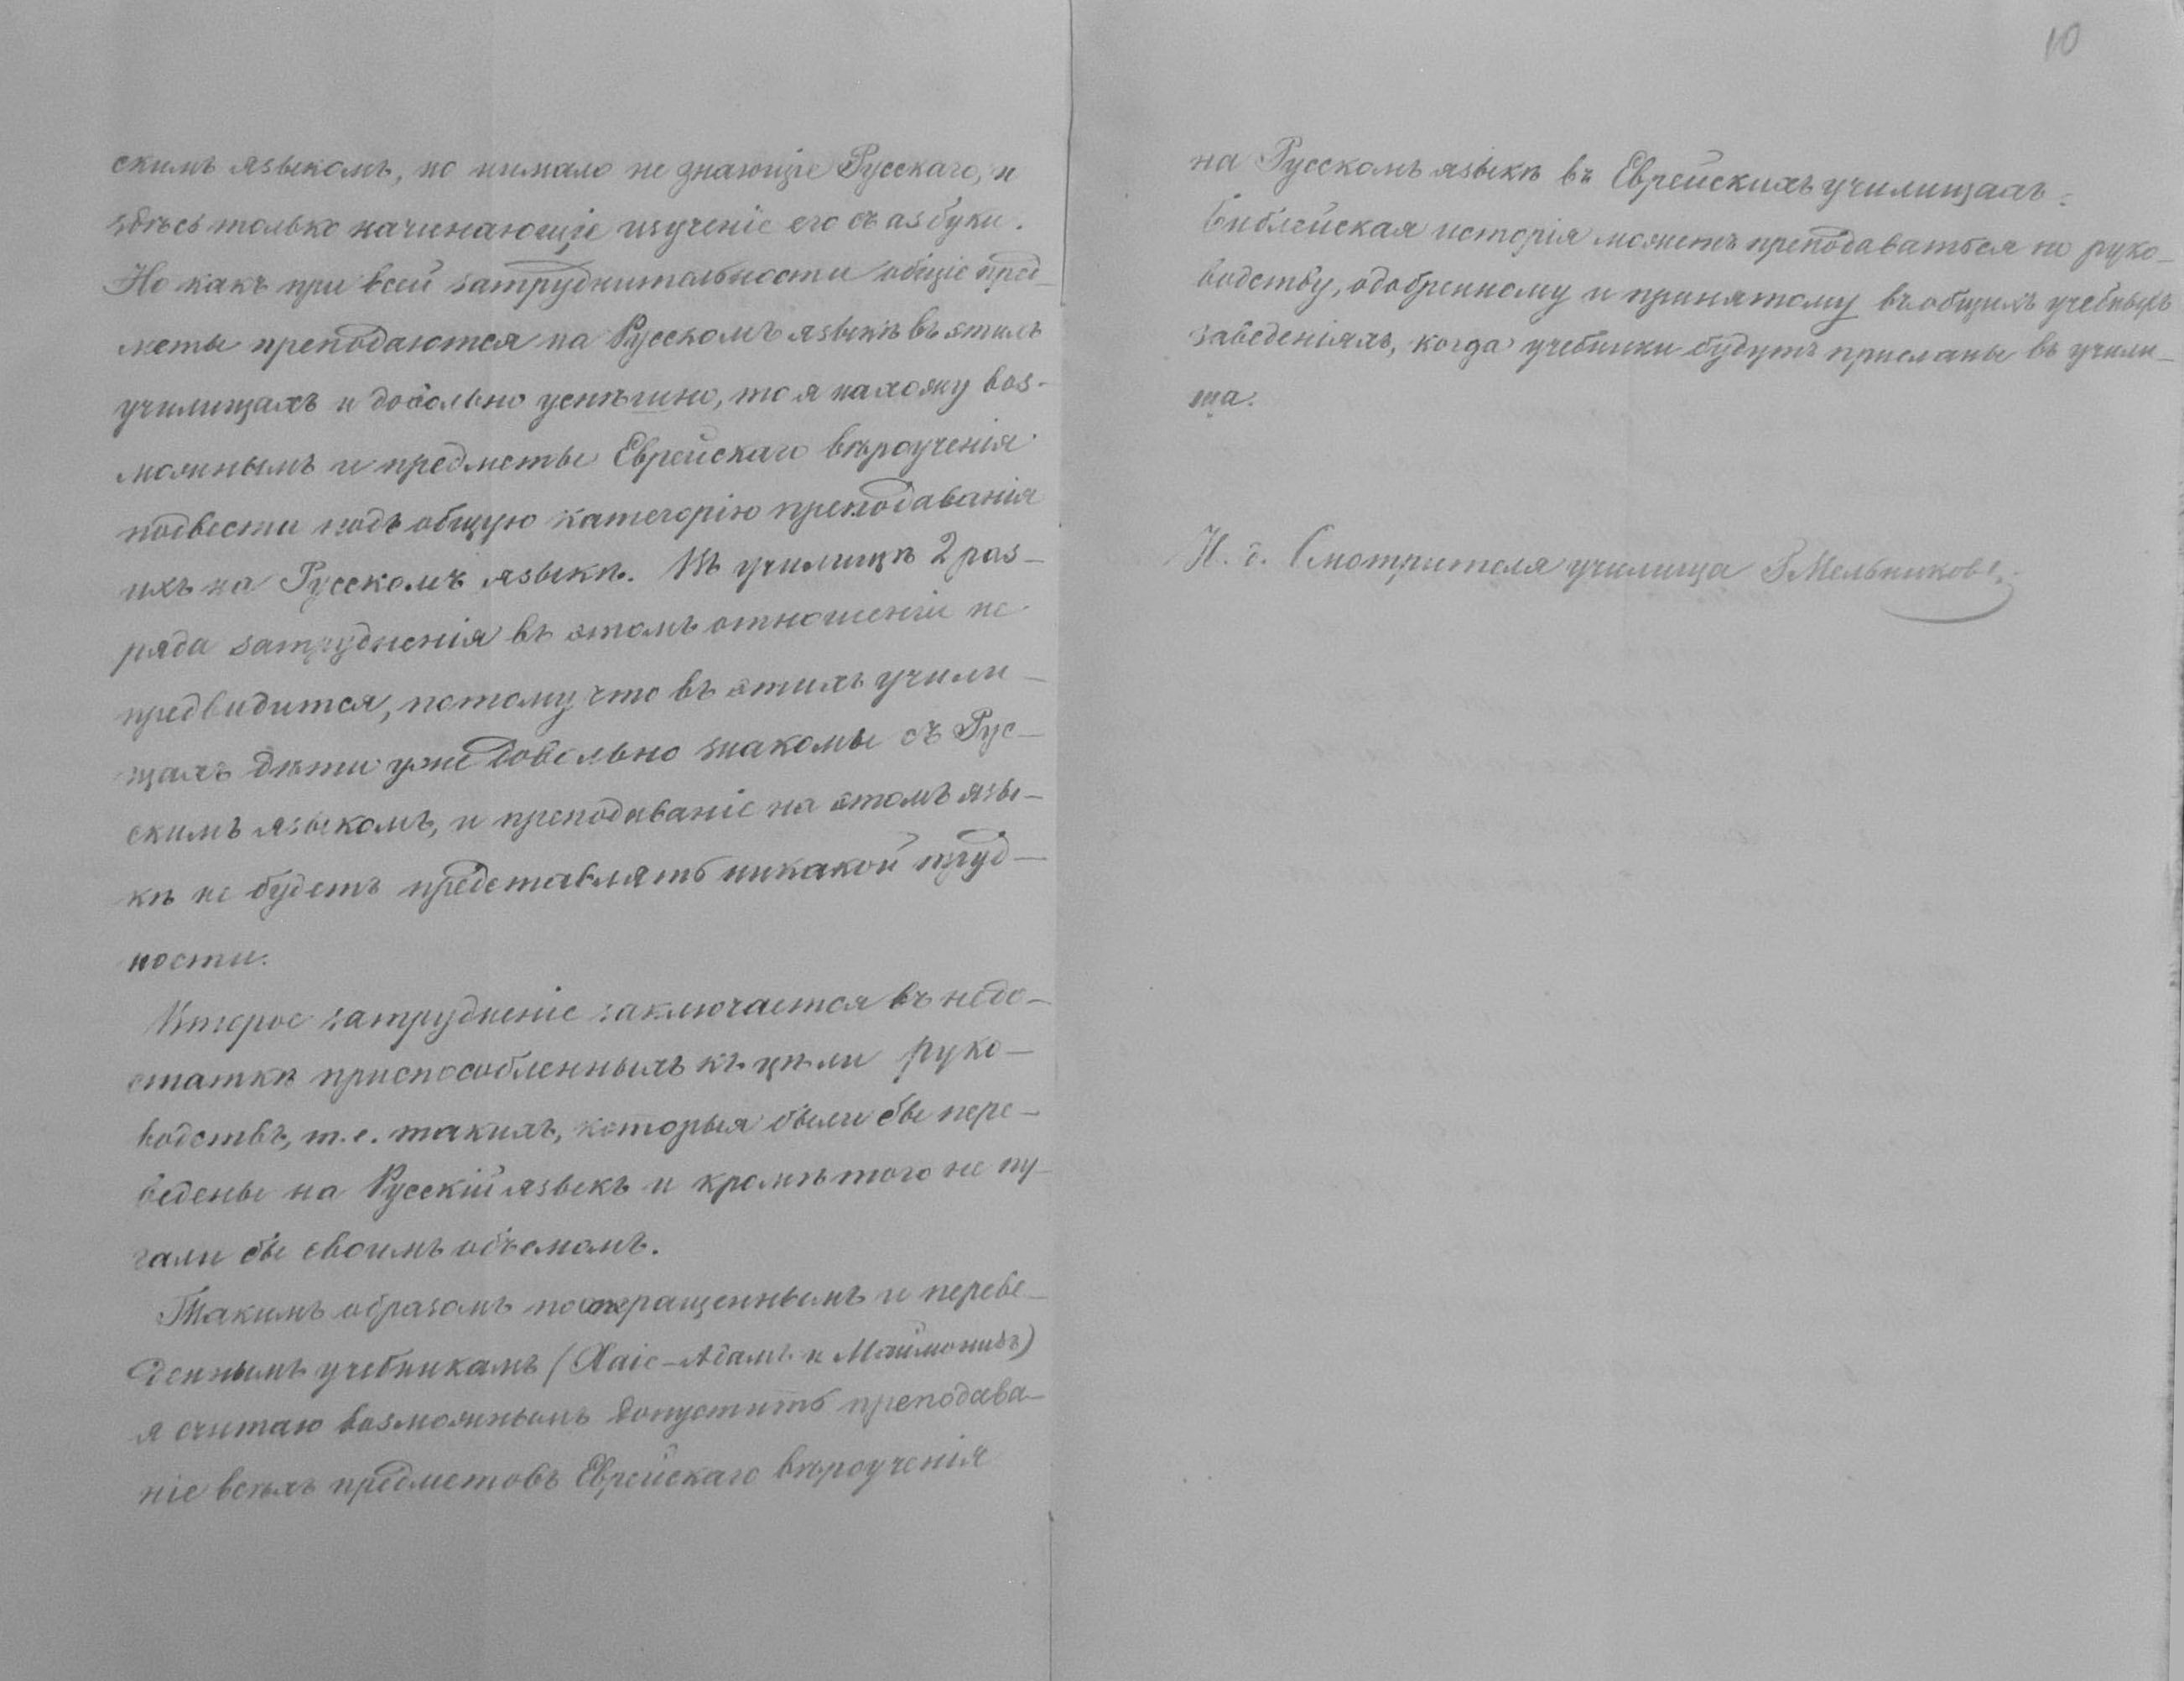 скимъ языкомъ, но нимало не знающіе Русскаго, и
здѣсь только начинающіе изученіе его съ азбуки.
Но какъ при всей затруднительности общіе пред-
меты преподаются на Русскомъ языкѣ въ этихъ
училищахъ и довольно успѣшно, то я нахожу воз-
можнымъ и предметы Еврейскаго вѣроученія
подвести подъ общую категорію преподаванія
ихъ на Русскомъ языкѣ. Въ училищѣ 2 раз-
ряда затрудненія въ этомъ отношеніи не
предвидится, потому что въ этихъ учили-
щахъ дѣти уже довольно знакомы съ Рус-
скимъ языкомъ, и преподаваніе на этомъ язы-
кѣ не будетъ представлять никакой труд-
ности.
Второе затрудненіе заключается въ недо-
статкѣ приспособленныхъ къ цѣли руко-
водствъ, т.е. такихъ, которыя были бы пере-
ведены на Русскій языкъ и кромѣ того не пу-
гали бы своимъ объемомъ.
Такимъ образомъ по сокращеннымъ и переве-
деннымъ учебникамъ (Хаіе-Адамъ и Маймонидъ)
я считаю возможнымъ допустить преподава-
ніе всѣхъ предметовъ Еврейскаго вѣроученія
10
на Русскомъ языкѣ въ Еврейскихъ училищахъ.
Библейская исторія можетъ преподаваться по руко-
водству, одобренному и принятому въ общихъ учебныхъ
заведеніяхъ, когда учебники будутъ присланы въ учили-
ща.
И. д. Смотрителя училища Мельниковъ